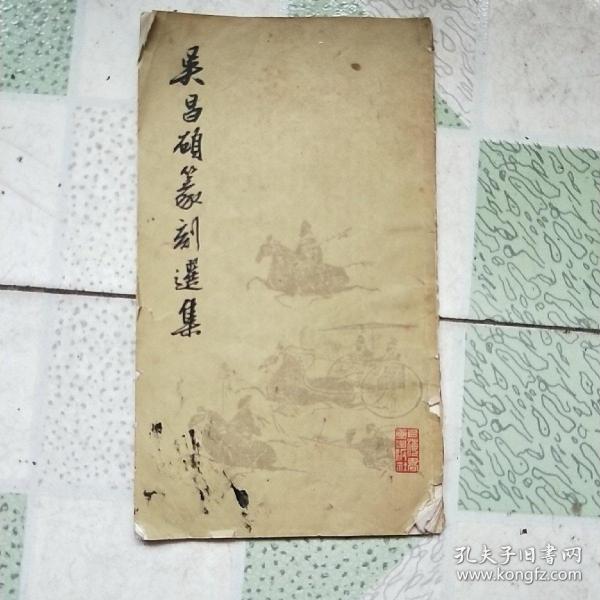 吴昌碩篆刻選集
孔夫子旧书网
www.kongfz.com